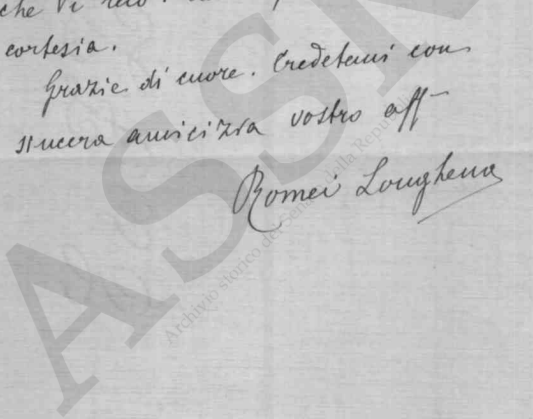 che vi
cortesia.
Grazie di cuore. Credetemi con
sincera amicizia vostro aff
Romei Longhena
ASSR
Archivio storico del Senato della Repubblica